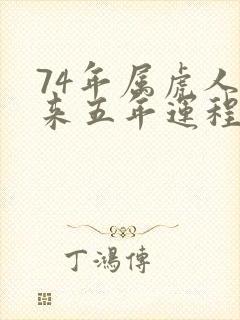 74年属虎人
来五年运程
丁鴻傳